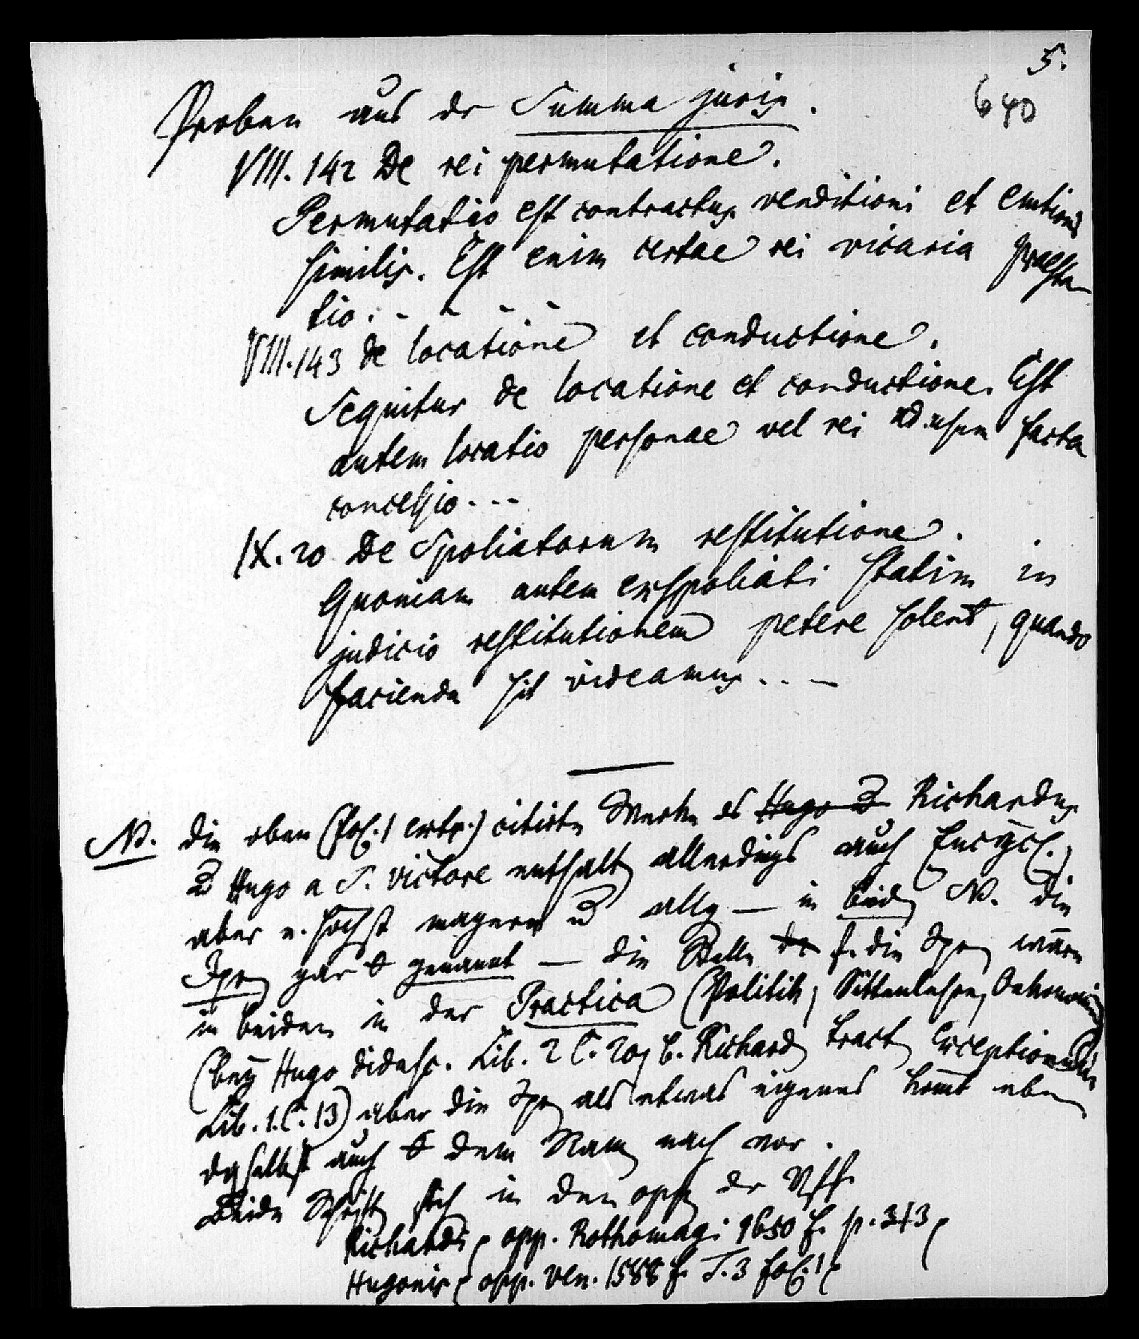 5.
640
Proben aus der Summa juris.
VIII. 142 De rei permutatione.
Permutatio est contractus venditioni et emtioni
similis. Est enim certae rei vicaria praesta-
tio. - - - -
VIII. 143 de locatione et conductione.
Sequitur de locatione et conductione. Est
autem locatio personae vel rei ad usum facta
concessio - - -
IX. 20 De Spoliatorum restitutione.
Quoniam autem exspoliati statim in
judicio restitutionem petere solent, quando
facienda sit videamus. - - -
NB. die oben (fol. 1 extr.) citirten Werke des Hugo u Richardus
u Hugo a S. Victore enthalten allerdings auch Encycl.,
aber e. höchst magere u allg — in beiden NB. die
gar genannt — die Stelle der f. die wäre
in beiden in der Practica (Politik, Sittenlehre, Oekonomie
(bey Hugo didasc. Lib. 2 C. 20, b. Richard tract exceptionum
Lib. 1. C. 13) aber die als etwas eigenes komt eben
daselbst auch dem Namen nach vor.
Beide Schriften sich in den opp der Vff.
Richardi opp. Rothomagi 1650 f. p. 343
Hugonis opp. Ven. 1588 f. T. 3 fol. 1